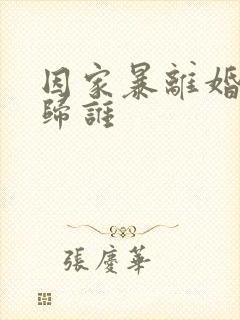 因家暴離婚
歸誰
張慶華